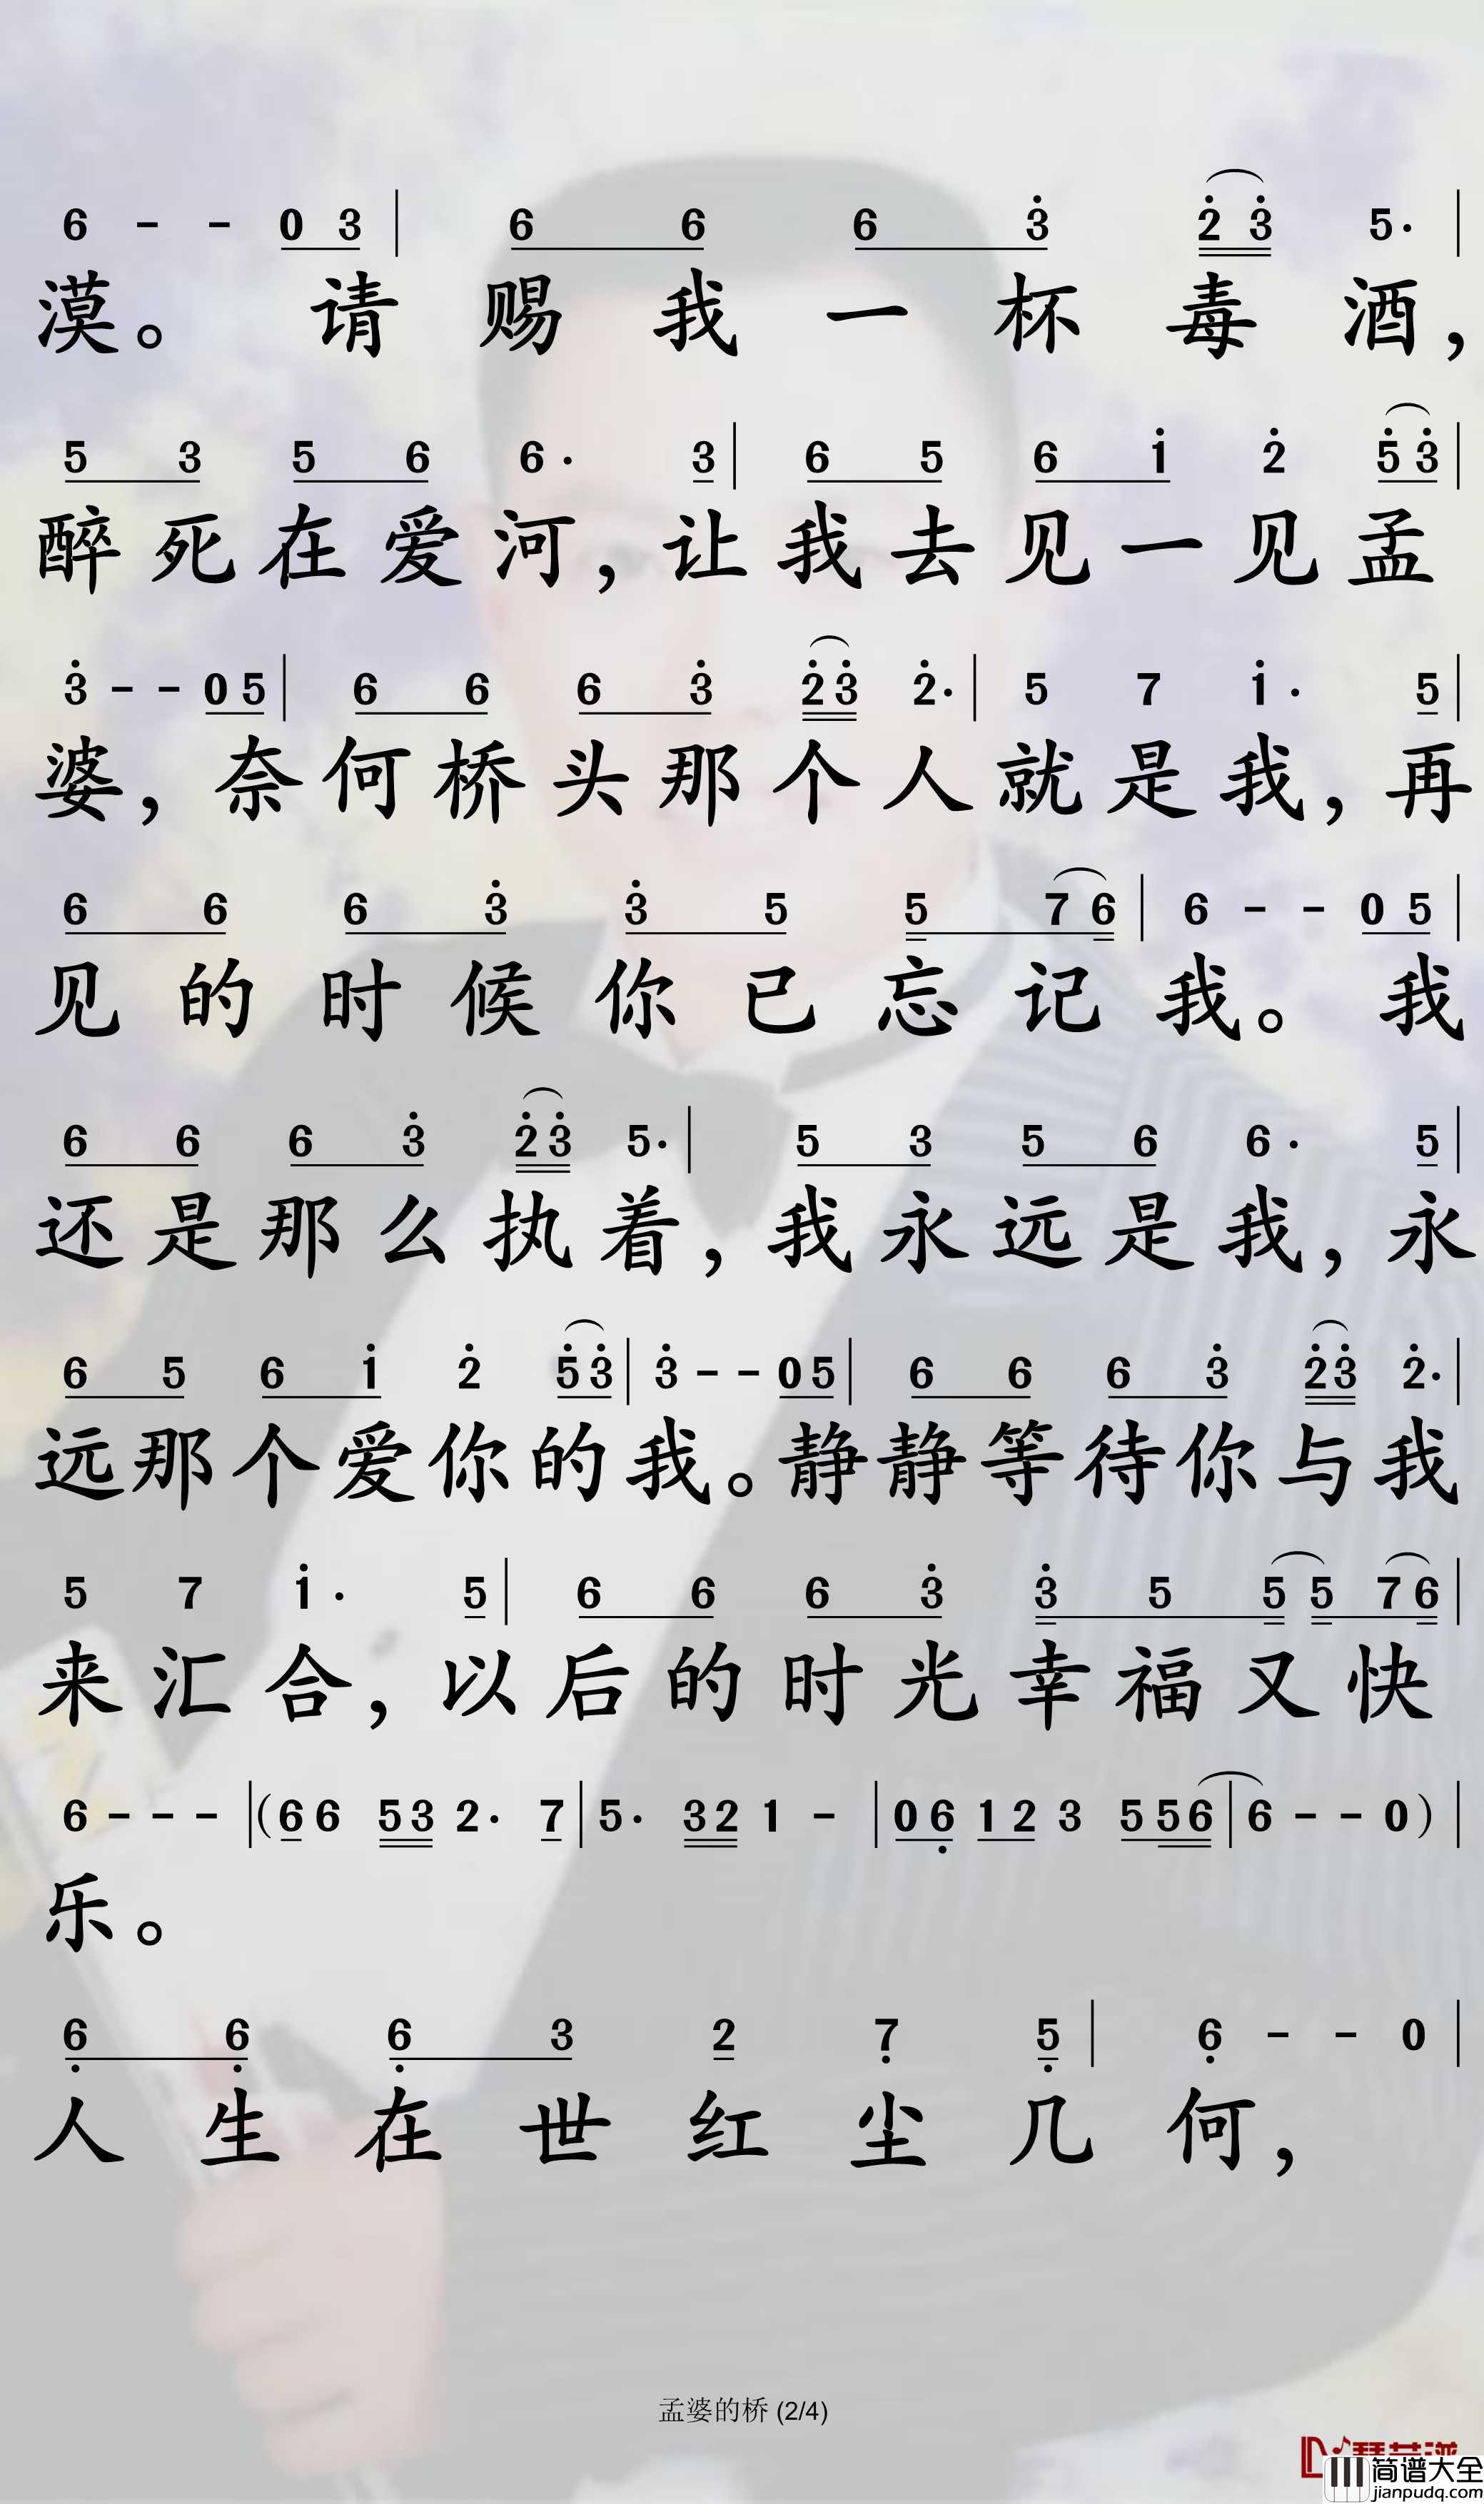 6 - - 0 3 | 6 6 6 3̇ 2̇ 3̇ 5· |
漠。请赐我一杯毒酒，
5 3 5 6 6· 3 | 6 5 6 1̇ 2̇ 5̇ 3̇ |
醉死在爱河，让我去见一见孟
3̇ - - 0 5 | 6 6 6 3̇ 2̇ 3̇ 2̇· | 5 7 1̇· 5 |
婆，奈何桥头那个人就是我，再
6 6 6 3̇ 3̇ 5 5 7 6 | 6 - - 0 5 |
见的时候你已忘记我。我
6 6 6 3̇ 2̇ 3̇ 5· | 5 3 5 6 6· 5 |
还是那么执着，我永远是我，永
6 5 6 1̇ 2̇ 5̇ 3̇ | 3̇ - - 0 5 | 6 6 6 3̇ 2̇ 3̇ 2̇· |
远那个爱你的我。静静等待你与我
5 7 1̇· 5 | 6 6 6 3̇ 3̇ 5 5 5 7 6 |
来汇合，以后的时光幸福又快
6 - - - | (6 6 5 3 2· 7 | 5· 3 2 1 - | 0 6̣ 1 2 3 5 5 6 | 6 - - 0) |
乐。
6̣ 6̣ 6̣ 3 2 7̣ 5̣ | 6̣ - - 0 |
人生在世红尘几何，
孟婆的桥 (2/4)
简谱大全
jianpudq.com